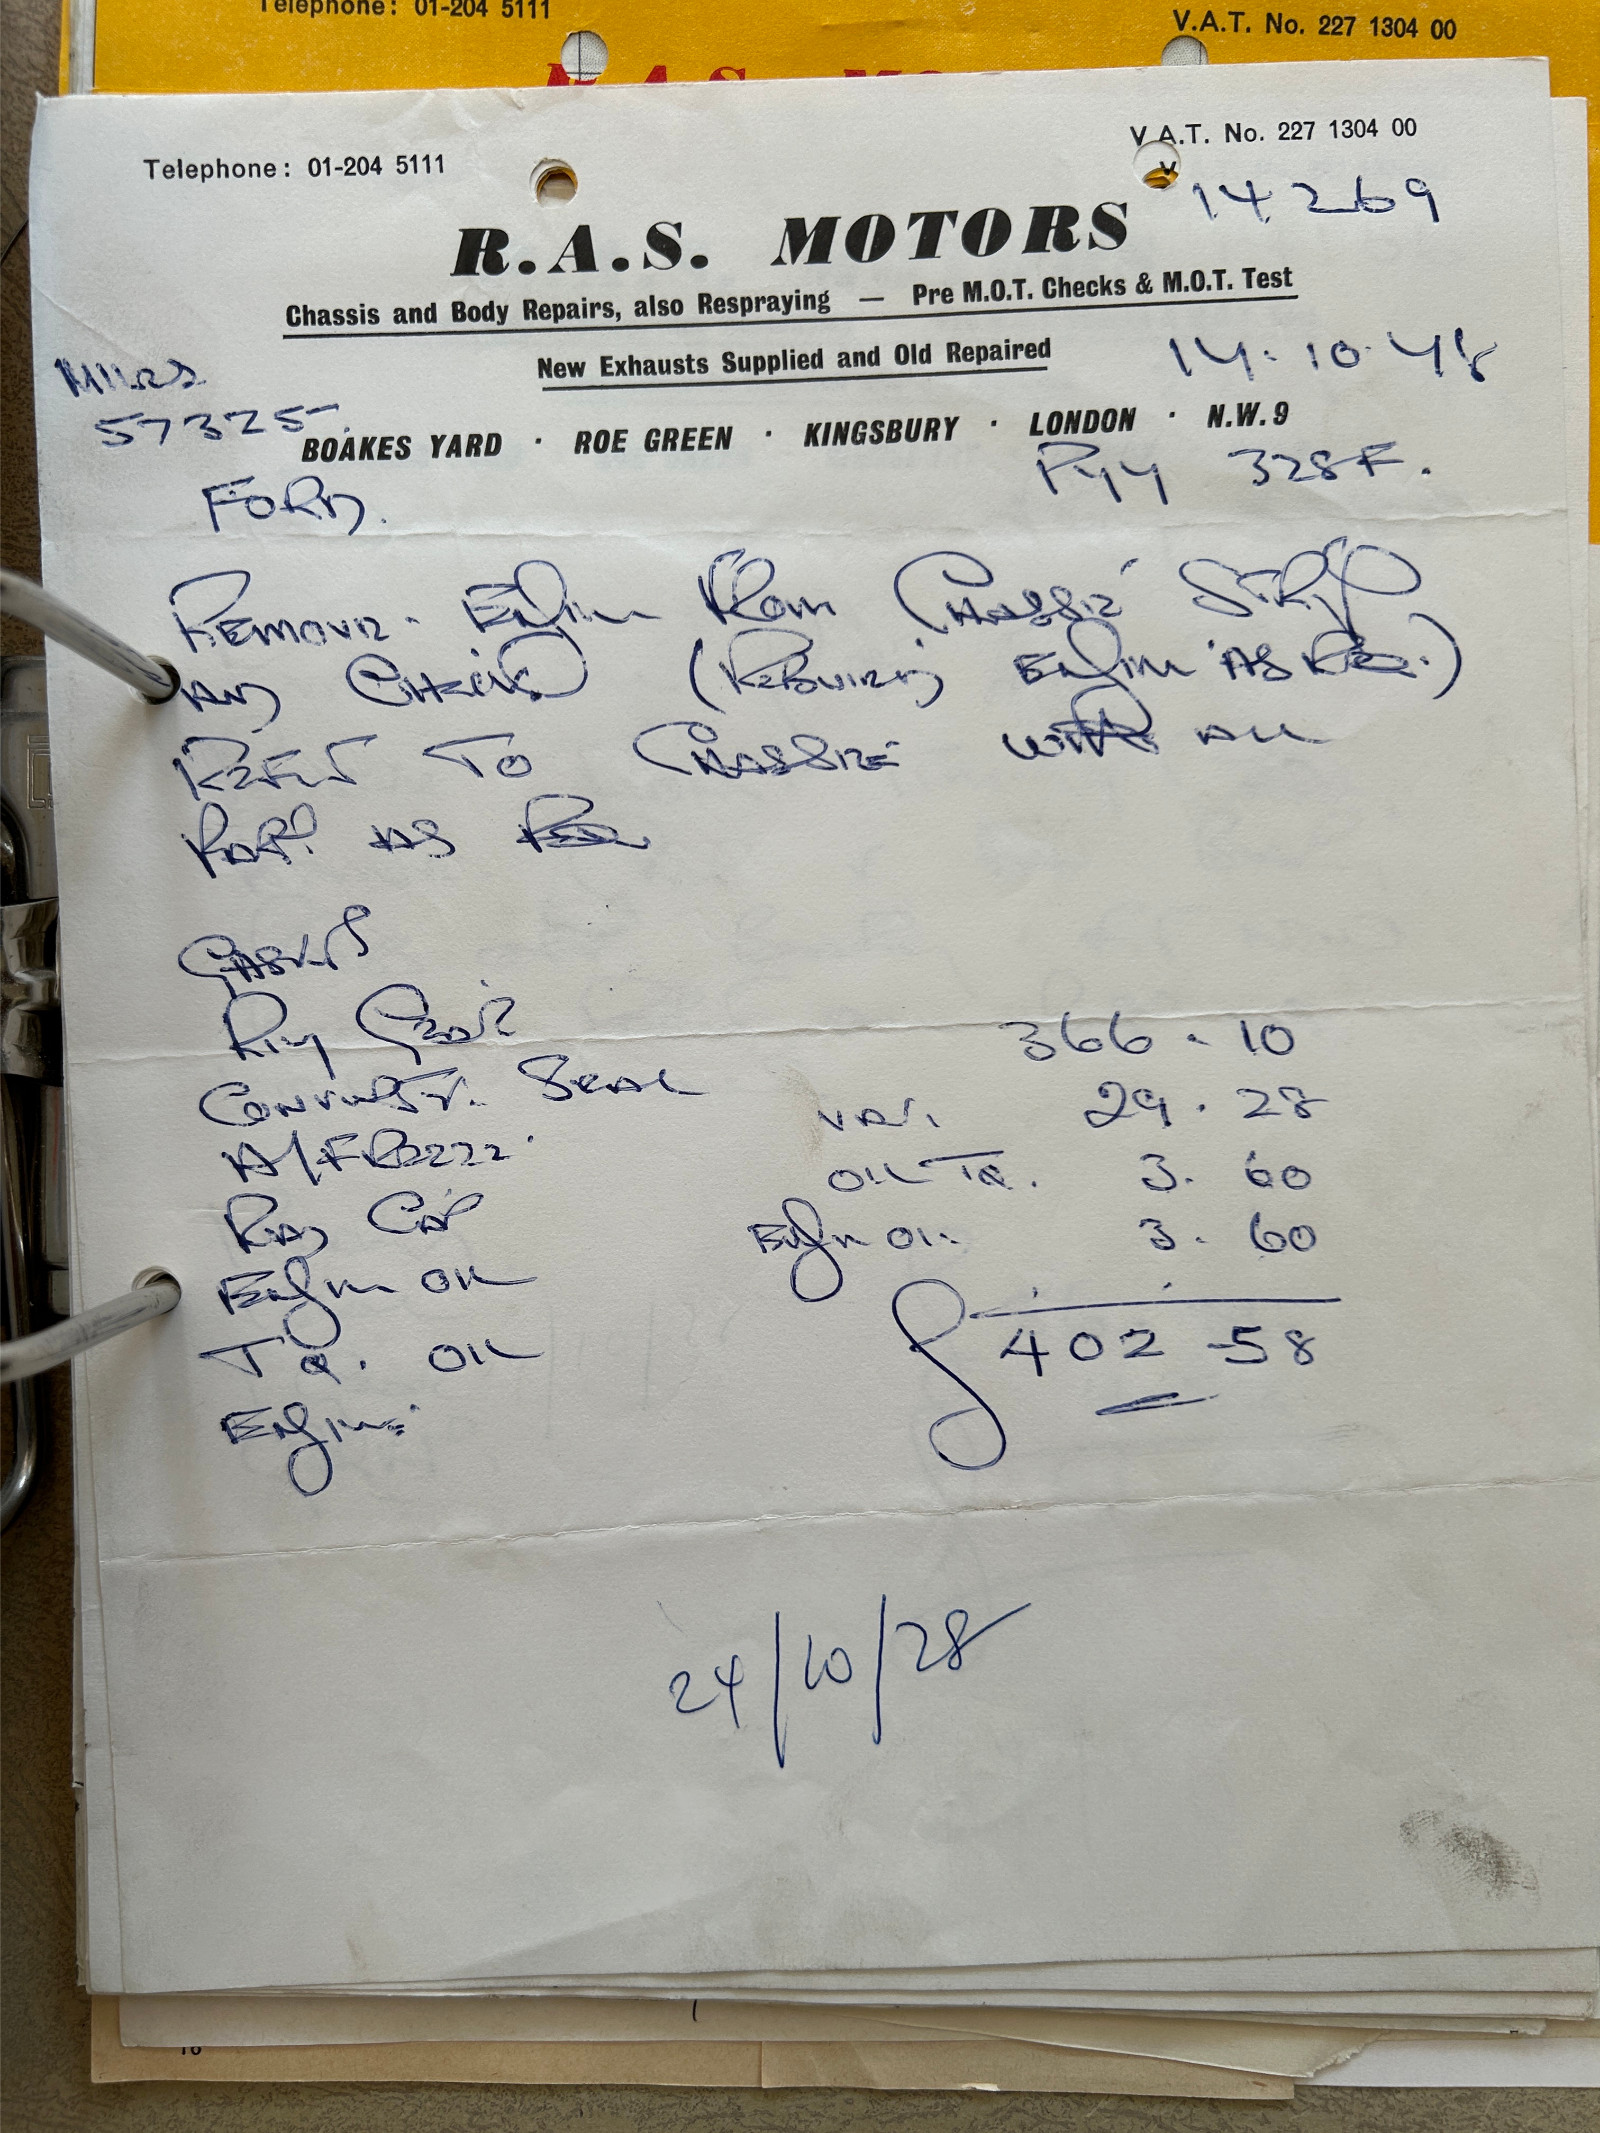 Telephone: 01-204 5111
V.A.T. No. 227 1304 00
Telephone: 01-204 5111
V.A.T. No. 227 1304 00
14269
R.A.S. MOTORS
Chassis and Body Repairs, also Respraying — Pre M.O.T. Checks & M.O.T. Test
New Exhausts Supplied and Old Repaired
14.10.48
Miles
57325
BOAKES YARD · ROE GREEN · KINGSBURY · LONDON · N.W.9
PYY 328F.
FORD.
REMOVE. Engine From CHASSIE STRIP
AND CHECK (REBUILD Engine AS REQ.)
REFIT TO CHASSIE with ALL
PART AS REQ
GASKETS
Ring GEAR
CONVERTER. SEAL
A/FREEZE.
RAD CAP
Engine OIL
TQ. OIL
Engine.
366.10
VAT. 29.28
OIL TQ. 3.60
Engine OIL. 3.60
£ 402-58
24/10/78